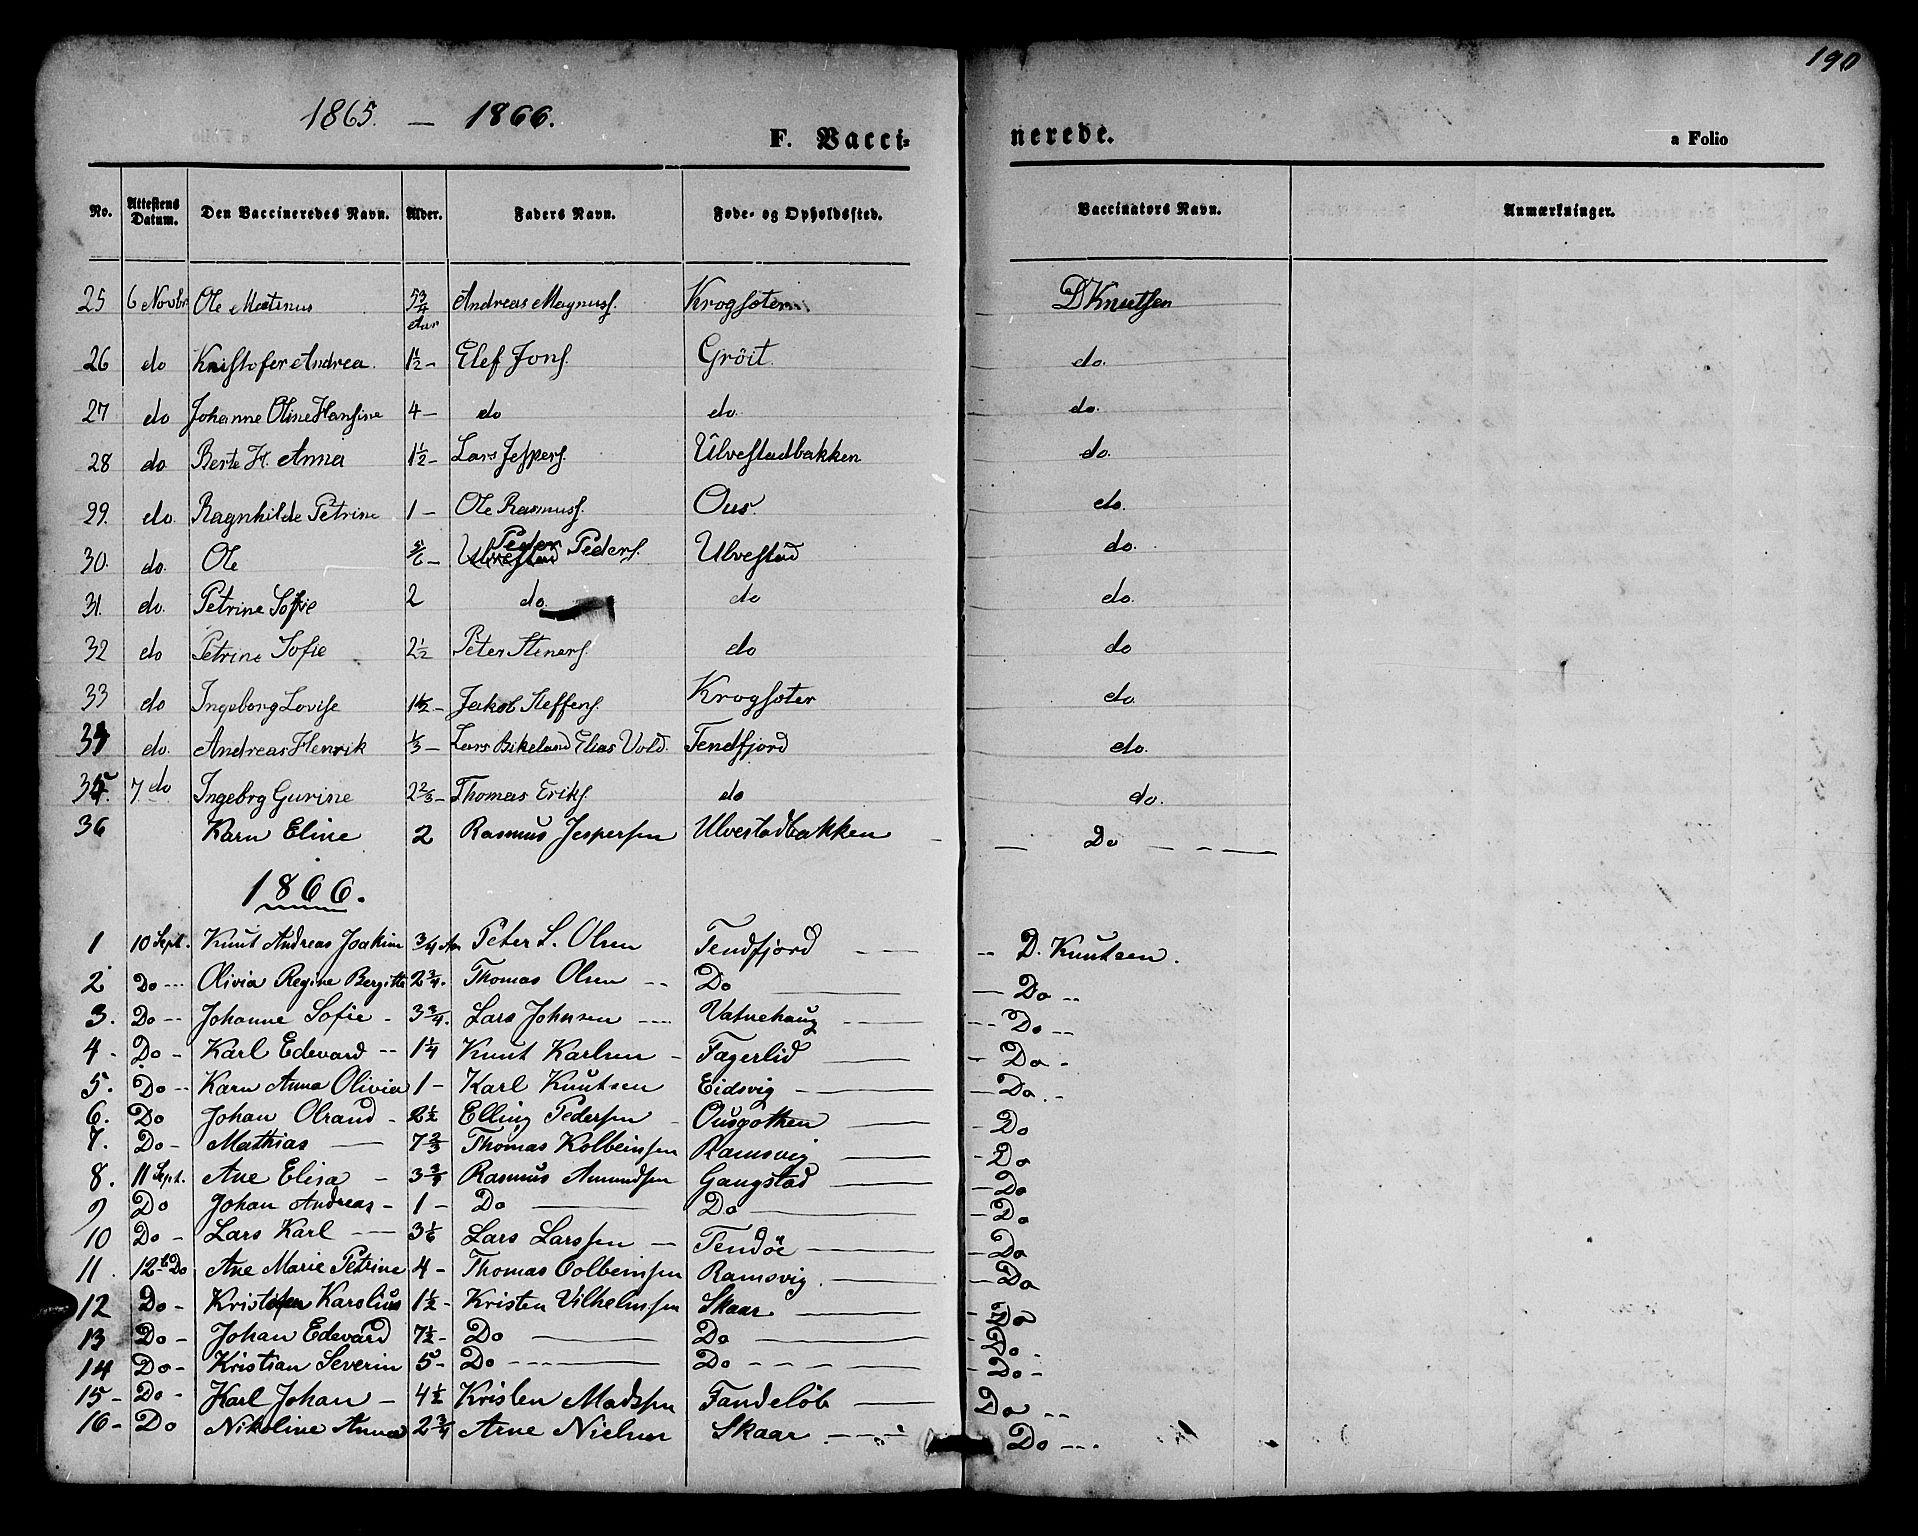 190
1865. — 1866.
F. Vacci= nerede. a Folio
No. Attestens Datum. Den Vaccineredes Navn. Alder. Faders Navn. Føde- og Opholdssted. Vaccinators Navn. Anmærkninger.
25 6 Novbr Ole Matinus 5 3/4 Aar Andreas Magnuss. Krogsæter D Knutsen
26 do Kristofer Andrea. 1 1/2 - Elef Jons. Gröit. do.
27 do Johanne Oline Hansine 4 - do do. do.
28 do Berte H. Anna 1 1/2 - Lars Jespers. Ulvestadbakken do.
29. do. Ragnhilde Petrine 1 - Ole Rasmuss. Ous. do.
30. do. Ole 5/6 - Peder Peders. Ulvestad do.
31. do. Petrine Sofie 2 do. do do.
32 do Petrine Sofie 2 1/2 Peter Steners. do do
33 do Ingeborg Lovise 1 1/2 - Jakob Steffens. Krogsæter do.
34 do. Andreas Henrik 1/3 - Lars Bikeland Elias Vold. Tendfjord do.
35. 7 do Ingebrg Gurine 2 2/3 - Thomas Eriks. do do.
36 Karn Eline 2 Rasmus Jespersen Ulvestadbakken — Do — - - —
1866.
1 10 Sept. Knut Andreas Joakim 3/4 Aar Peter L. Olsen Tendfjord — -- D. Knutsen.
2 Do --- Olivia Regine Bergitte 2 3/4. Thomas Olsen -- Do — — Do --
3. Do -- Johanne Sofie - 3 3/4. Lars Johnsen --- Vatnehaug — -- Do --
4 - Do - Karl Edevard -- 1 1/4 Knut Karlsen - Fagerlid — - Do -
5. Do -- Karn Anna Olivia 1 - Karl Knutsen Eidsvig — — Do. -
6. Do Johan Olraud - 2 1/2 Elling Pedersen - Ousgothen — - Do
7. Do - Mathias — 7 2/3 Thomas Kolbeinsen Ramsvig — - Do
8. 11 Sept. Ane Elisa - 3 3/4 Rasmus Amundsen Gangstad — - Do
9 Do Johan Andreas - 1 - Do — Do — - Do
10 Do - Lars Karl — 3 1/6 Lars Larssen — Tendöe — - Do
11. 12te Do Ane Marie Petrine 4 - Thomas Colbeinsen Ramsvig. — - Do
12 Do - Kristofer Karolius 1 1/2 - Kristen Vilhelmssen Skaar — - Do
13 Do - Johan Edevard 7 1/2 - Do — Do — - Do -
14 Do - Kristian Severin 5 - Do --- — Do - - - — - Do -
15 - Do - Karl Johan — 4 1/2 Kristen Madssen Fandelöb — Do --
16 - Do Nikoline Anna 2 3/4 Arne Nielsen Skaar. --- Do ---